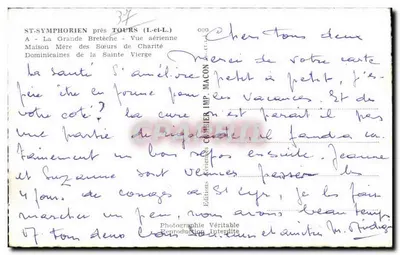 37
ST-SYMPHORIEN près TOURS (I.-et-L.)
A - La Grande Bretèche - Vue aérienne
Maison Mère des Sœurs de Charité
Dominicaines de la Sainte Vierge
Editions COMBIER IMP. MACON
Chers tous deux
Merci de votre carte
La santé s'améliore petit à petit, j'es-
père être en forme pour les vacances. Et de
votre côté? La cure est paraît il pas
une partie de il faudra ce
tainement un bon repos ensuite. Jeanne
et Suzanne sont venues passer les
4 jours de congés à St Cyr, je les fais
marcher un peu, nous avons beau temps
tous deux et amitiés M.
Photographie Véritable
Reproduction Interdite